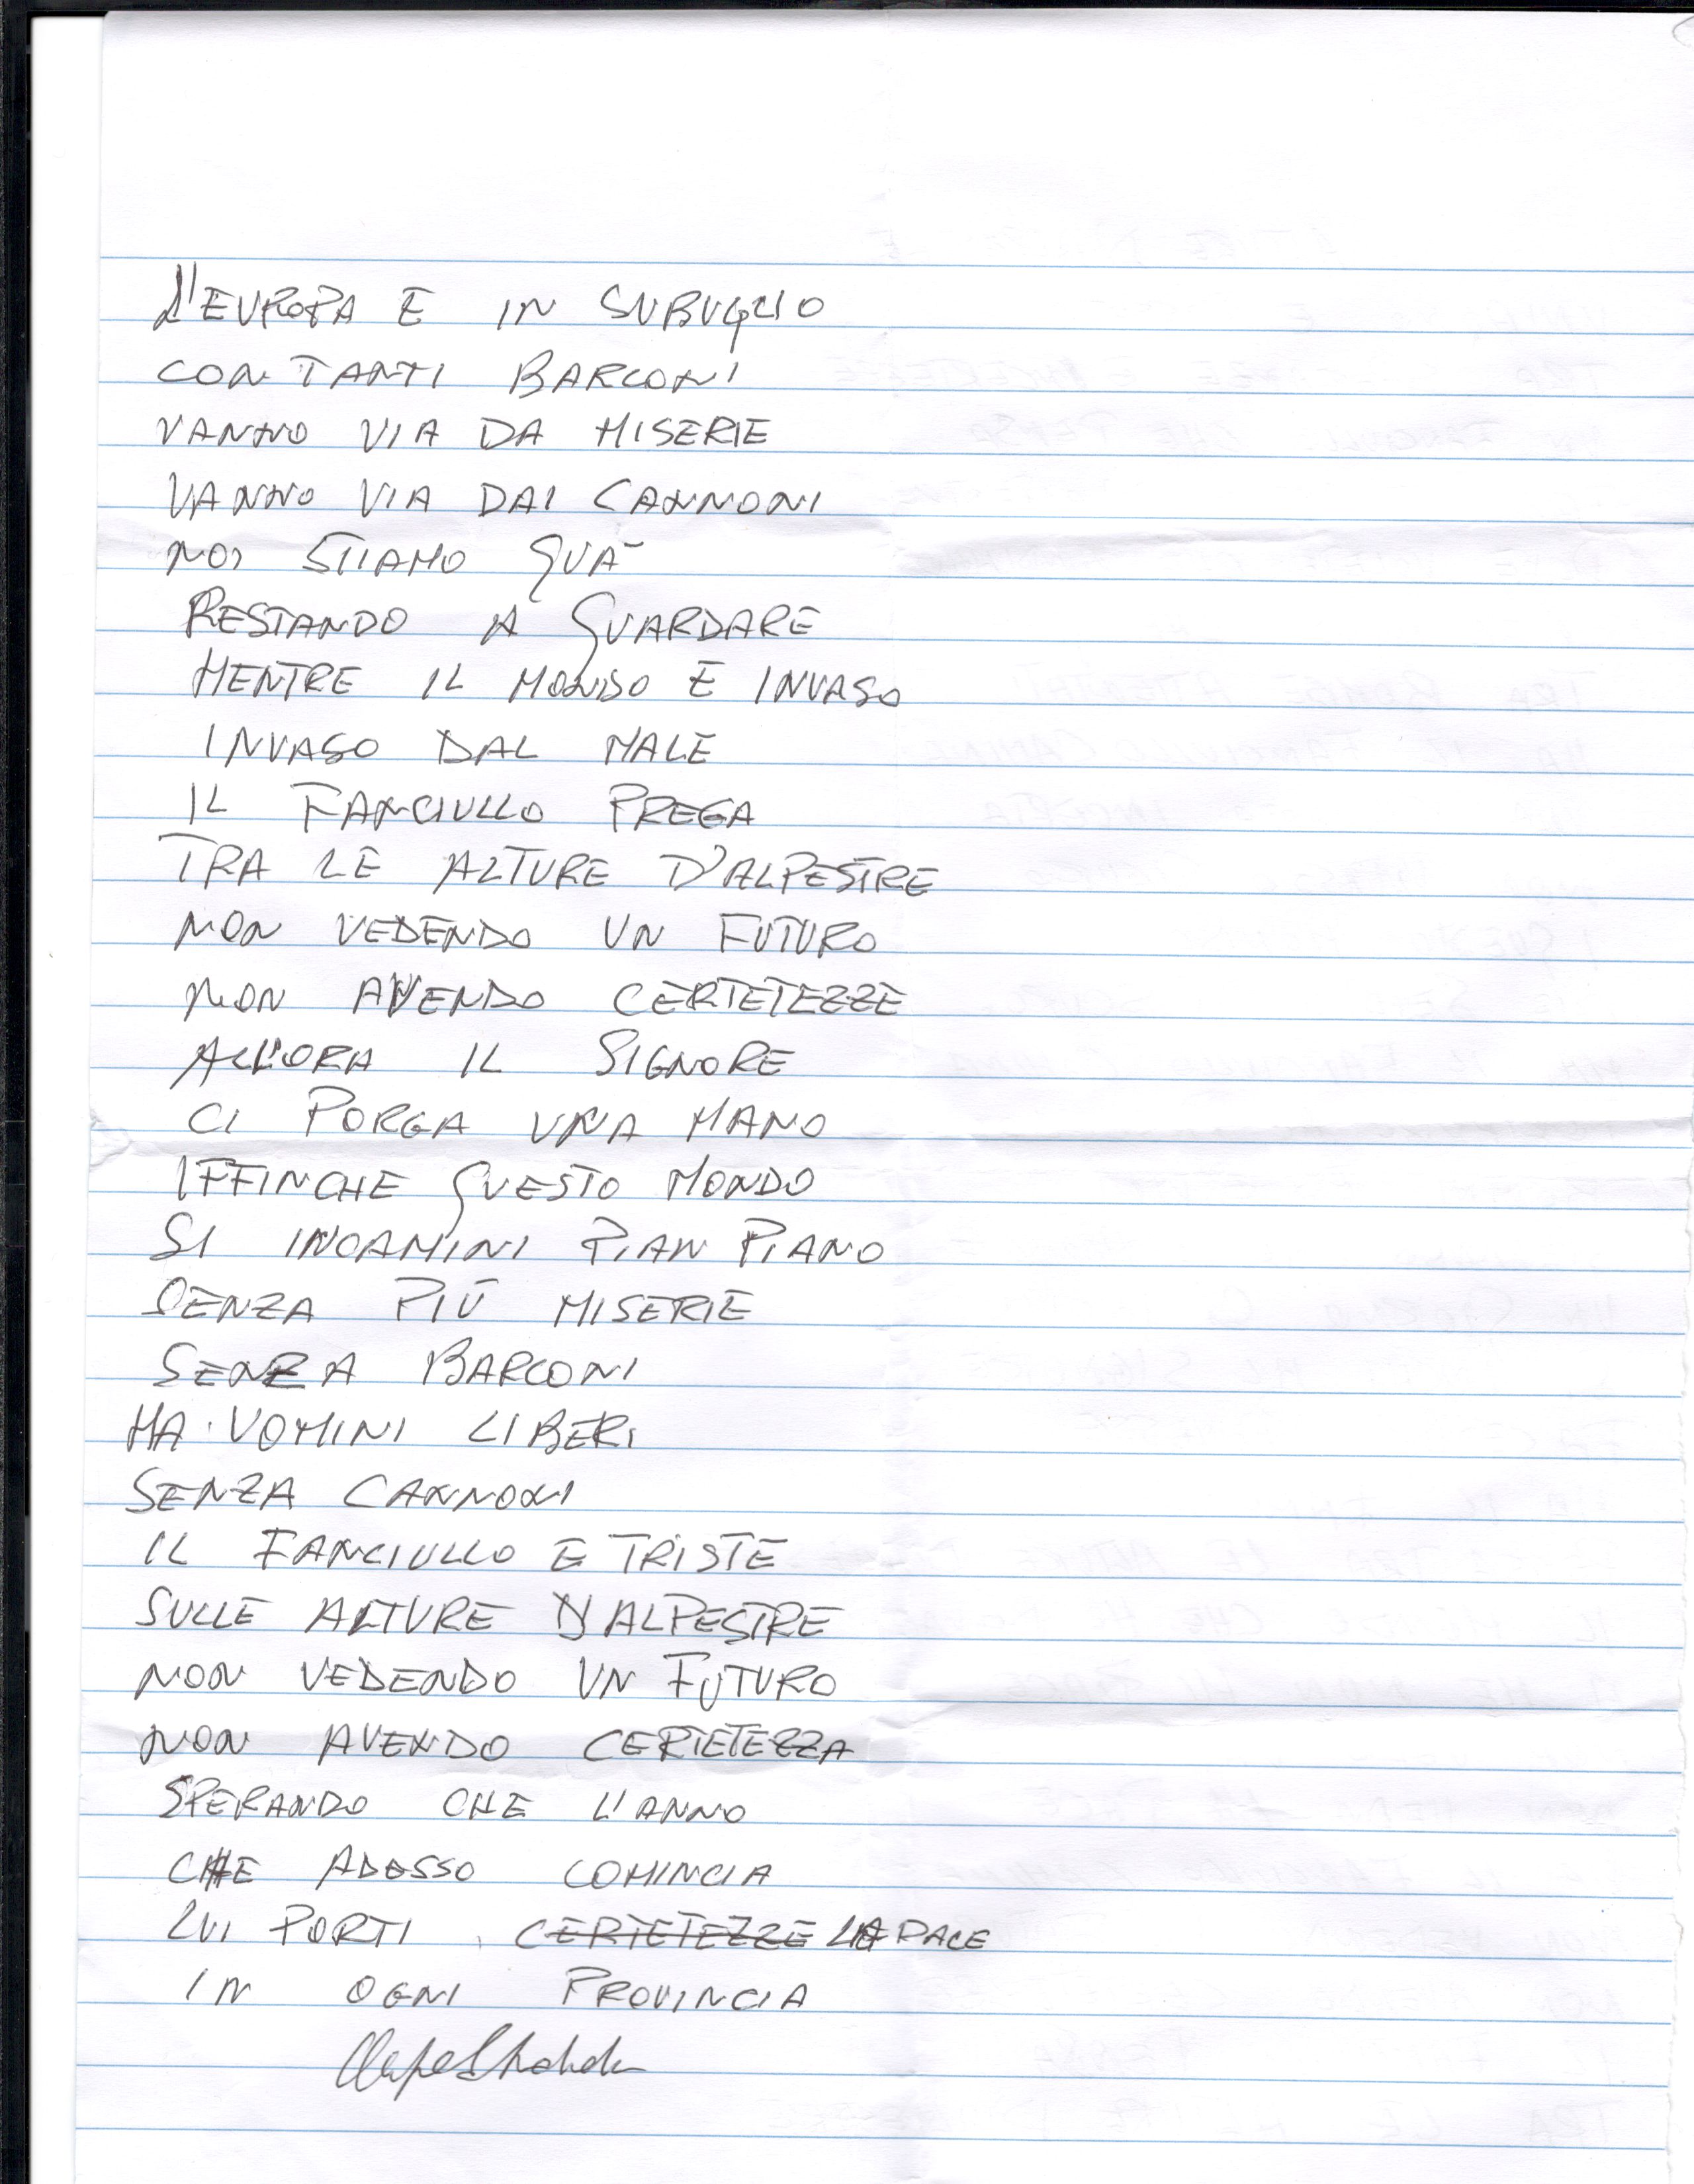 L'EUROPA E IN SUBUGLIO
CON TANTI BARCONI
VANNO VIA DA MISERIE
VANNO VIA DAI CANNONI
NOI STIAMO QUÀ
RESTANDO A GUARDARE
MENTRE IL MONDO E INVASO
INVASO DAL MALE
IL FANCIULLO PREGA
TRA LE ALTURE D'ALPESTRE
NON VEDENDO UN FUTURO
NON AVENDO CERTETEZZE
ALL'ORA IL SIGNORE
CI PORGA UNA MANO
IFFINCHE QUESTO MONDO
SI INCAMINI PIAN PIANO
SENZA PIÙ MISERIE
SENZA BARCONI
MA UOMINI LIBERI
SENZA CANNONI
IL FANCIULLO E TRISTE
SULLE ALTURE D'ALPESTRE
NON VEDENDO UN FUTURO
NON AVENDO CERTETEZZA
SPERANDO CHE L'ANNO
CHE ADESSO COMINCIA
LUI PORTI CERTETEZZE LA PACE
IN OGNI PROVINCIA